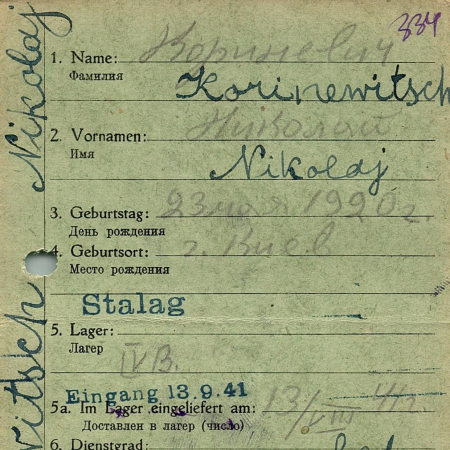 334
1. Name: Кориневич
Фамилия
Korinewitsch
2. Vornamen: Николай
Имя
Nikolaj
3. Geburtstag: 23 мая 1920 г.
День рождения
4. Geburtsort: г. Киев
Место рождения
Stalag
5. Lager:
Лагер
IV B.
Eingang 13.9.41
5a. Im Lager eingeliefert am: 13/VIII 41
Доставлен в лагер (число)
6. Dienstgrad:
Nikolaj
witsch